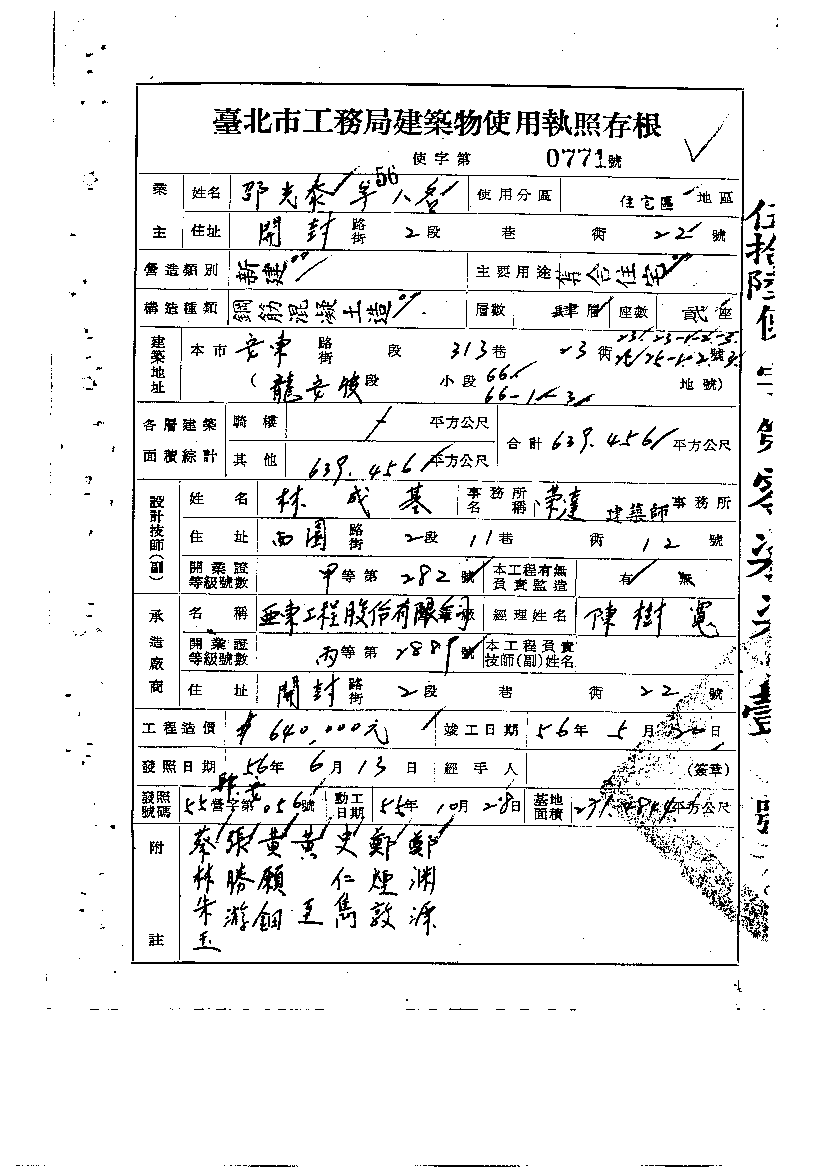 臺北市工務局建築物使用執照存根
56使字第0771號
業主 姓名 邵光泰 等 人名 使用分區 住宅區 地區
住址 開封路街2段 巷 衖 22號
營造類別 新建 主要用途 集合住宅
構造種類 鋼筋混凝土造 層數 肆層 座數 貳座
建築地址 本市 安東路街 段 313巷 23衖 號
( 龍安坡段 小段 66 66-1 地號)
各層建築面積綜計 騎樓 平方公尺 合計 639.456平方公尺
其他 639.456平方公尺
設計技師(副) 姓名 林成基 事務所名稱 榮達建築師事務所
住址 西園路街2段11巷 衖 12號
開業證等級號數 甲等第282號 本工程有無負責監造 有 無
承造廠商 名稱 亞東工程股份有限公司 經理姓名 陳樹寬
開業證等級號數 丙等第2889號 本工程負責技師(副)姓名
住址 開封路街2段 巷 衖 22號
工程造價 $640,000元 竣工日期 56年5月 日
發照日期 56年6月13日 經手人 (簽章)
發照號碼 55營字第056號 動工日期 55年10月28日 基地面積 平方公尺
附註
鄭淵源
鄭煙敦
史仁雋
黃王
黃願鈿
張勝游
蔡林朱玉
伍拾陸使字第零柒柒壹號